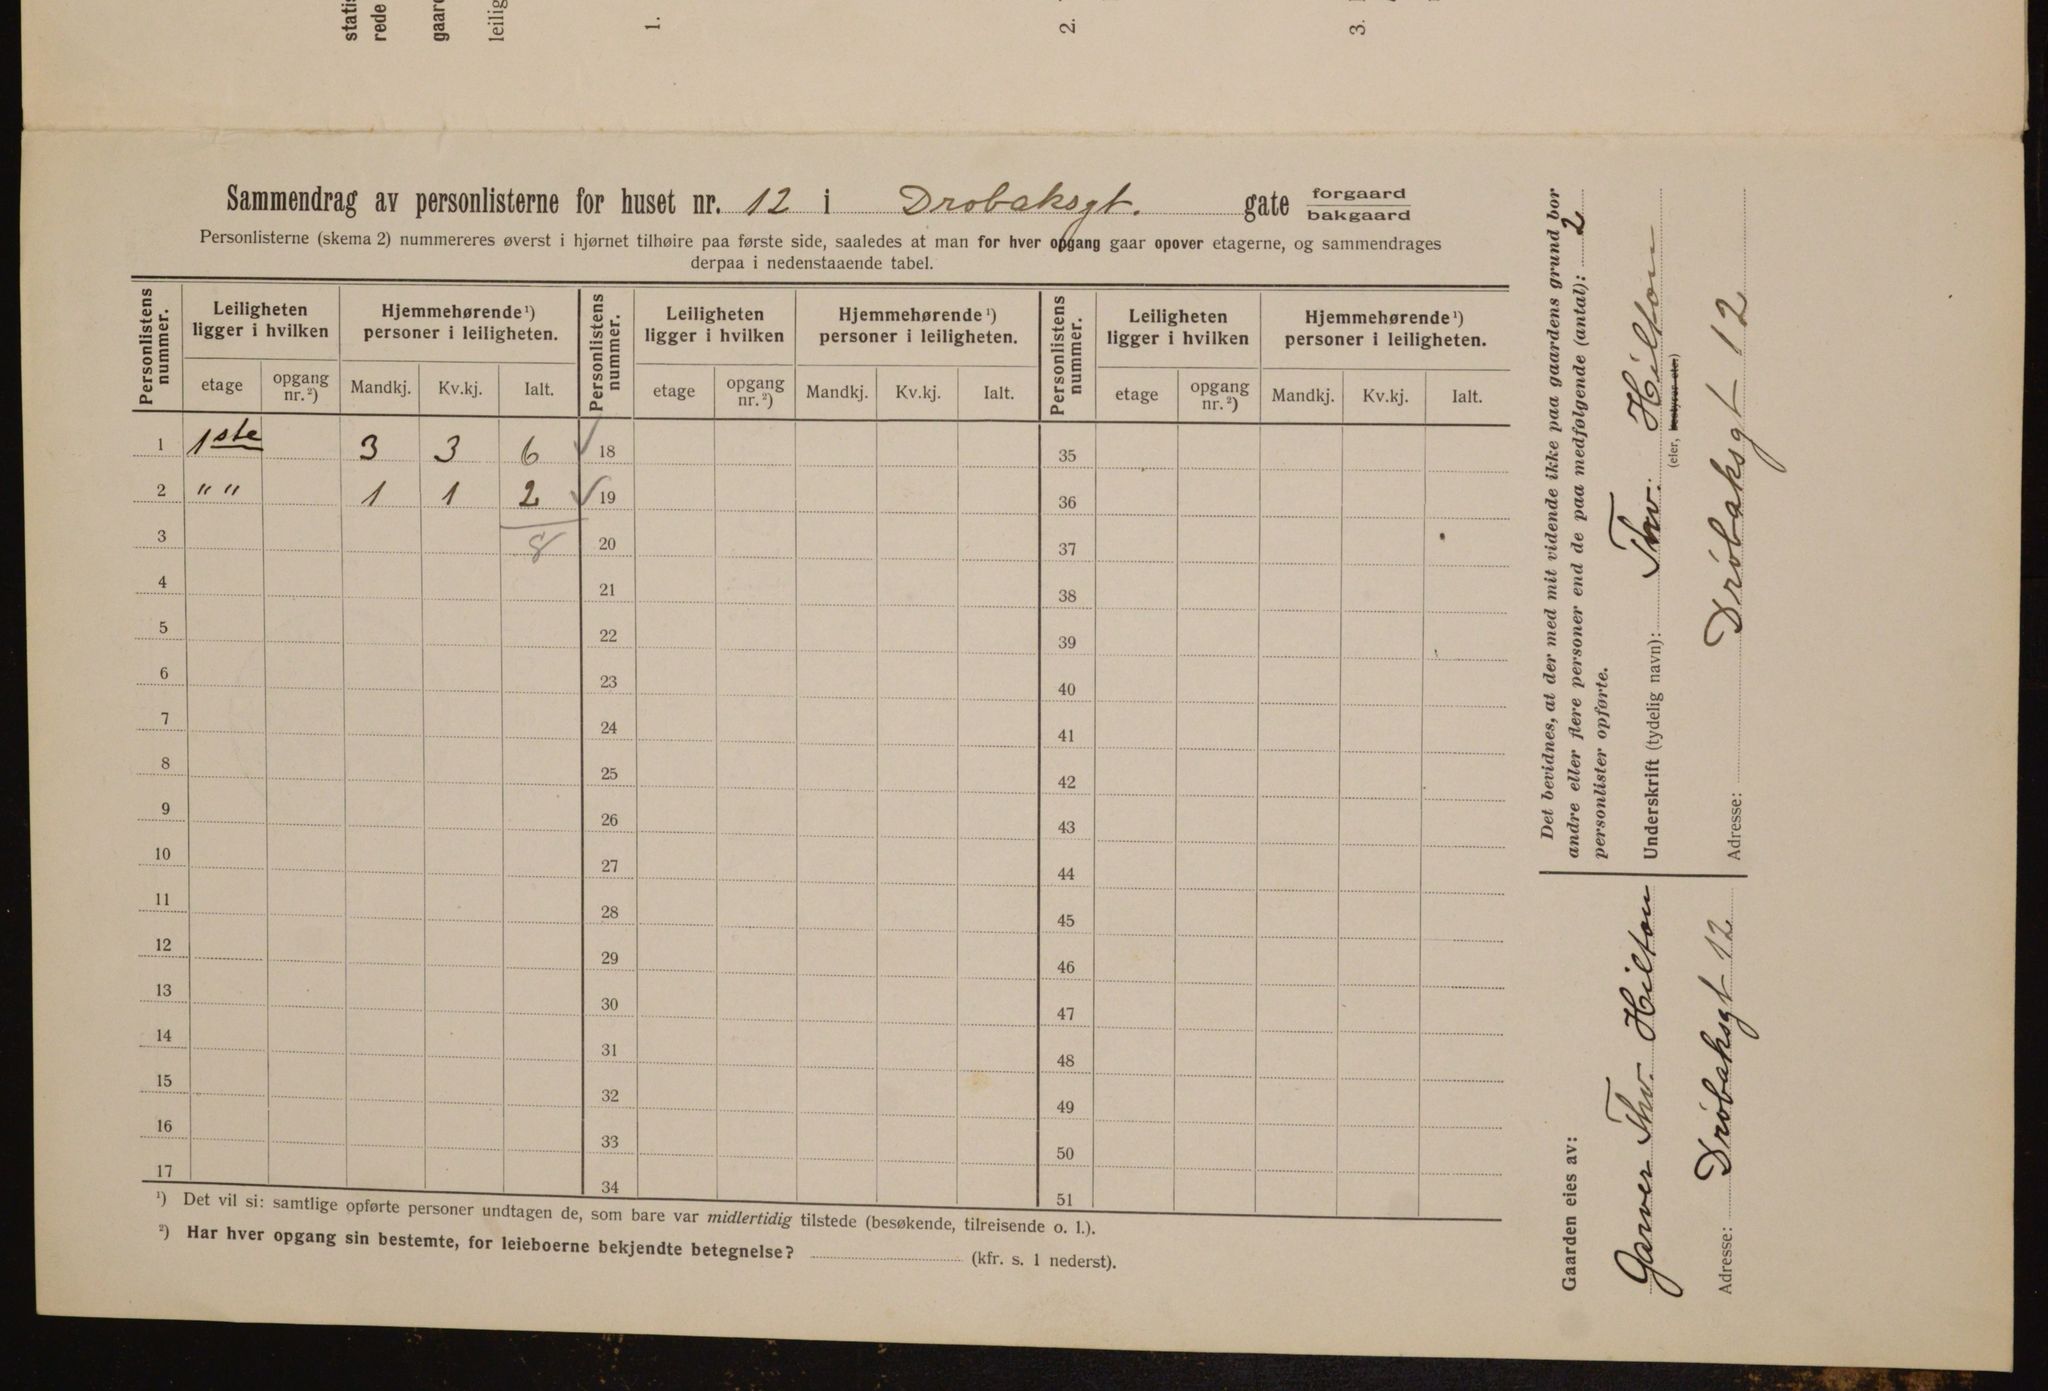 statis
rede
gaard
leilig
1.
2.
3.
Sammendrag av personlisterne for huset nr. 12 i Drøbaksgt. gate forgaard
bakgaard
Personlisterne (skema 2) nummereres øverst i hjørnet tilhøire paa første side, saaledes at man for hver opgang gaar opover etagerne, og sammendrages
derpaa i nedenstaaende tabel.
Personlistens nummer. Leiligheten ligger i hvilken Hjemmehørende¹) personer i leiligheten. Personlistens nummer. Leiligheten ligger i hvilken Hjemmehørende¹) personer i leiligheten. Personlistens nummer. Leiligheten ligger i hvilken Hjemmehørende¹) personer i leiligheten.
etage opgang nr.²) Mandkj. Kv.kj. Ialt. etage opgang nr.²) Mandkj. Kv.kj. Ialt. etage opgang nr.²) Mandkj. Kv.kj. Ialt.
1 1ste 3 3 6 ✓ 18 35
2 " " 1 1 2 ✓ 19 36
3 8 20 37
4 21 38
5 22 39
6 23 40
7 24 41
8 25 42
9 26 43
10 27 44
11 28 45
12 29 46
13 30 47
14 31 48
15 32 49
16 33 50
17 34 51
¹) Det vil si: samtlige opførte personer undtagen de, som bare var midlertidig tilstede (besøkende, tilreisende o. l.).
²) Har hver opgang sin bestemte, for leieboerne bekjendte betegnelse? (kfr. s. 1 nederst).
Det bevidnes, at der med mit vidende ikke paa gaardens grund bor
andre eller flere personer end de paa medfølgende (antal): 2
personlister opførte.
Underskrift (tydelig navn): Thv. Hilton
(eier, bestyrer etc.)
Adresse: Drøbaksgt 12
Gaarden eies av:
Garver Thv. Hilton
Adresse: Drøbaksgt 12